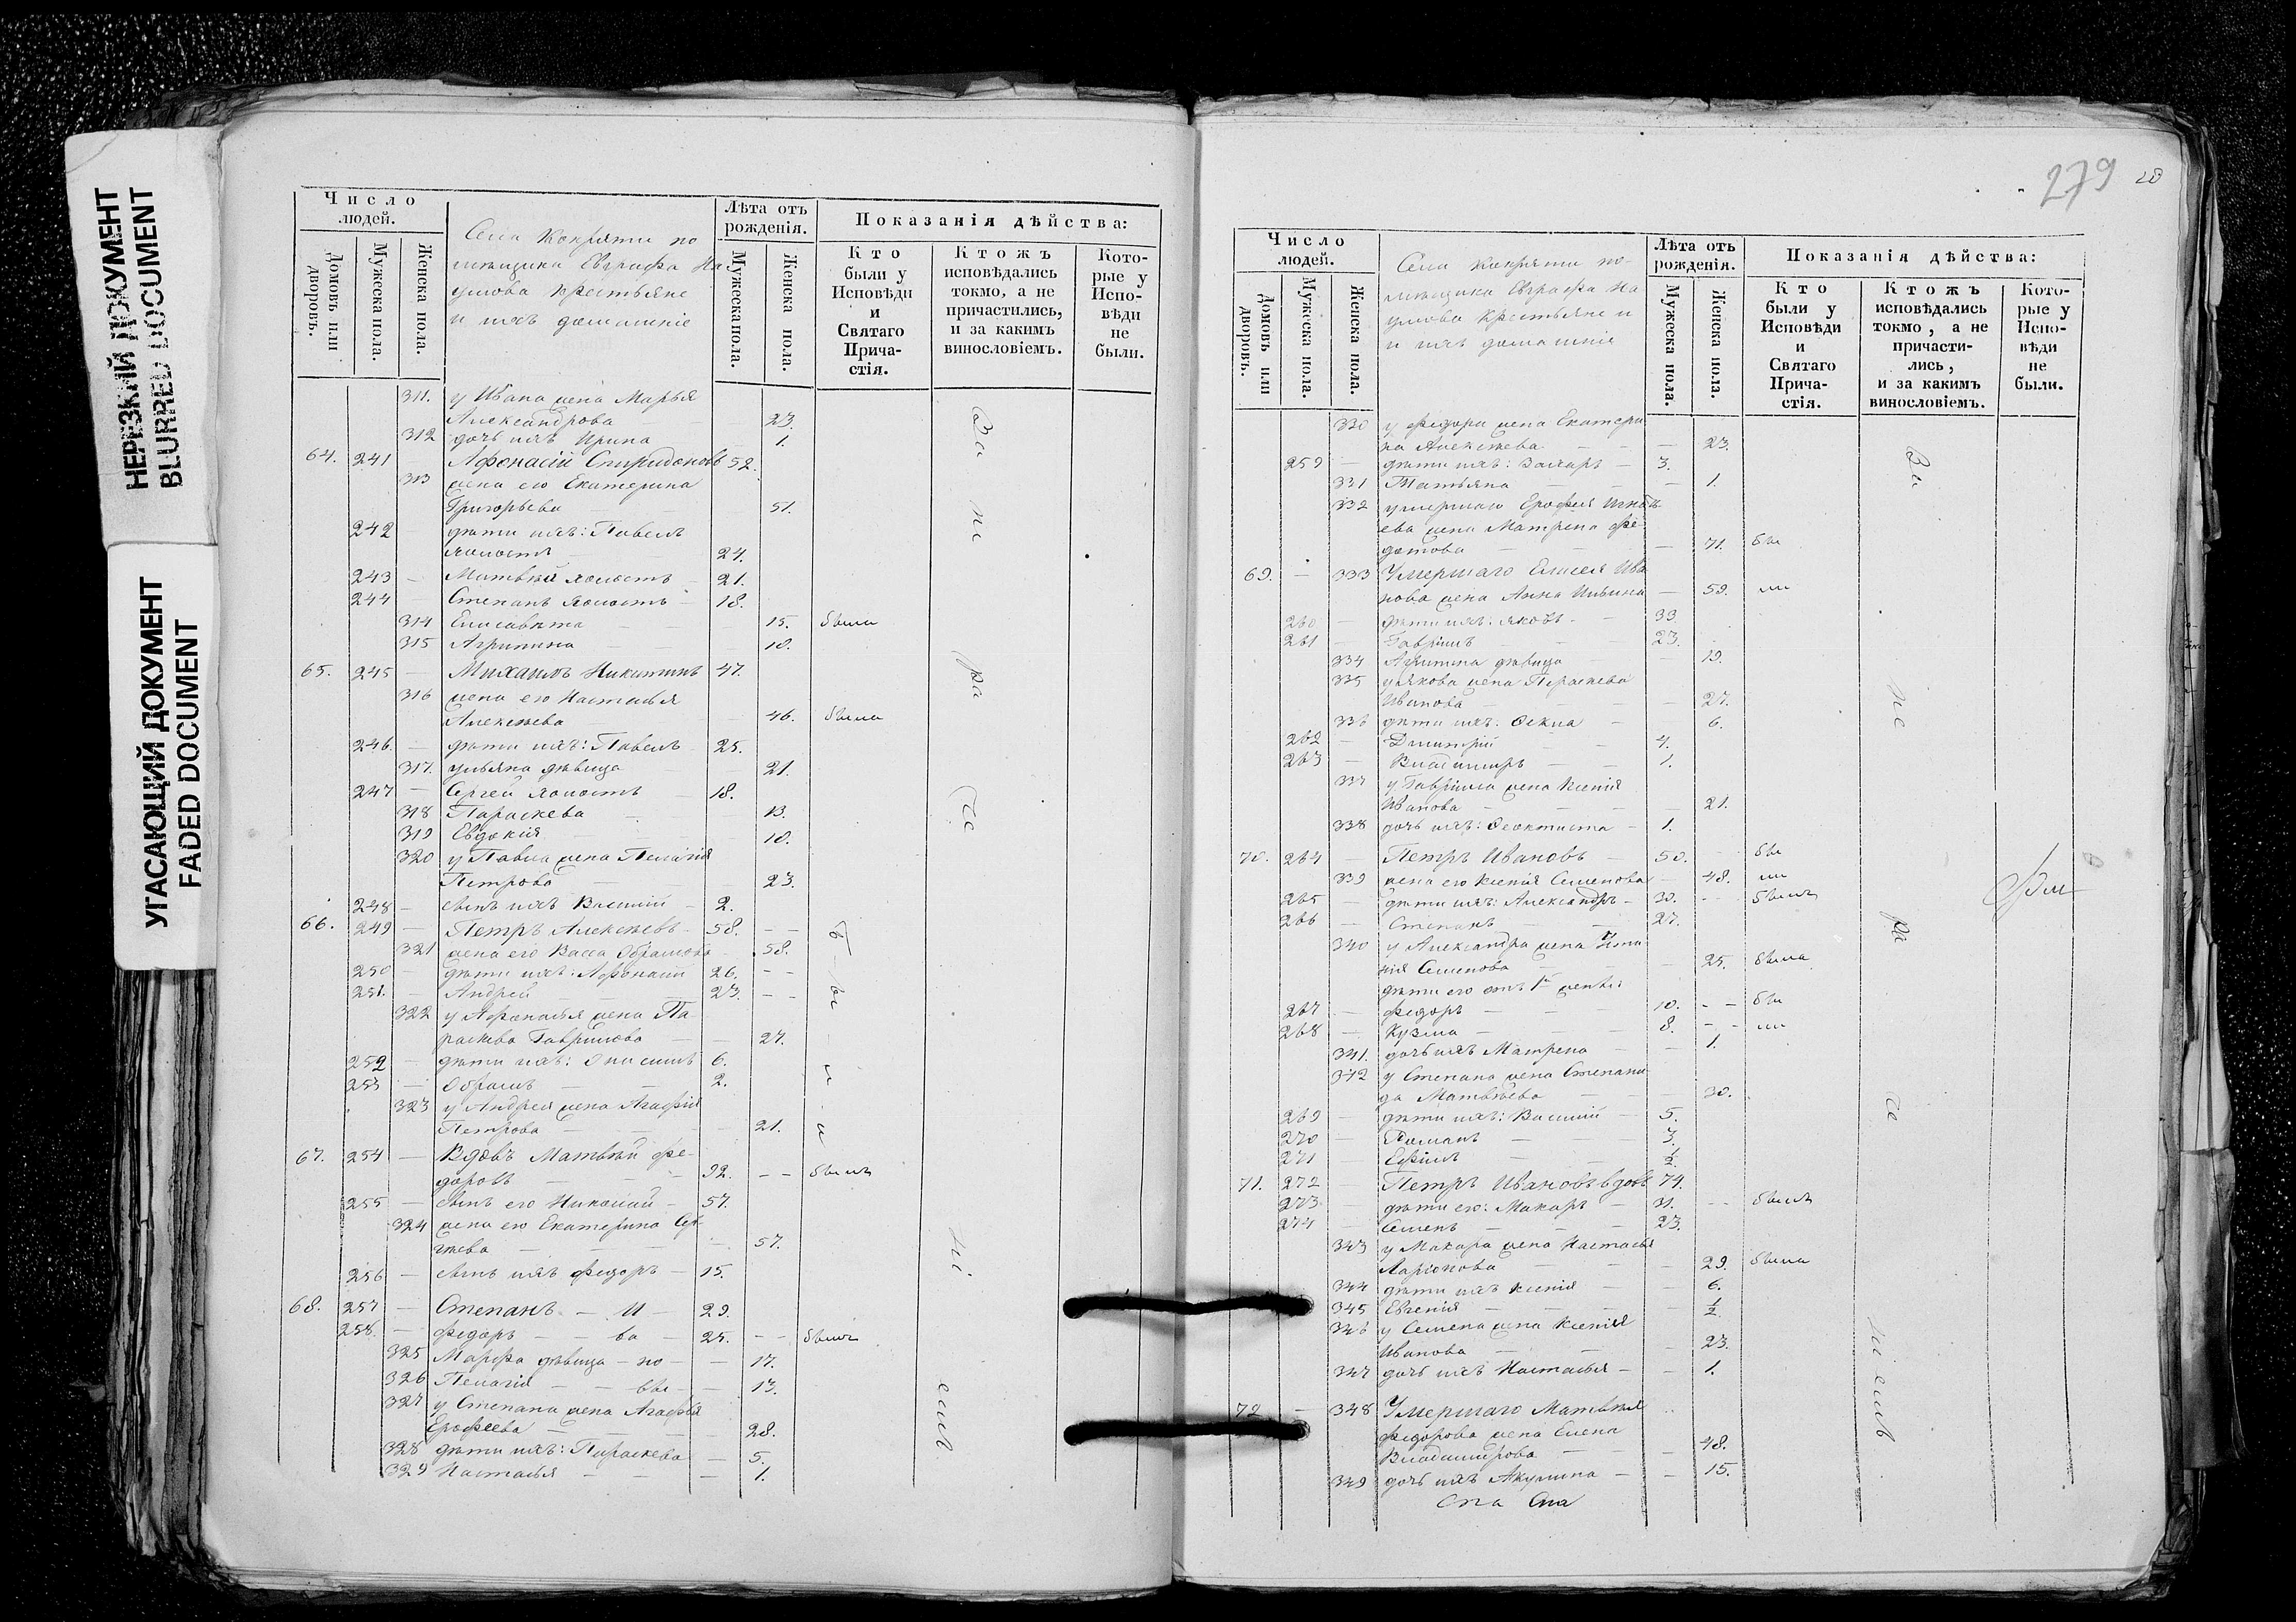 НЕРЕЗКИЙ ДОКУМЕНТ
BLURRED DOCUMENT
УГАСАЮЩИЙ ДОКУМЕНТ
FADED DOCUMENT
Число людей.
Домовъ или дворовъ.
Мужеска пола.
Женска пола.
Села Кокряти по
мѣщика Евграфа На
умова крестьяне
и ихъ домашніе
Лѣта отъ рожденія.
Мужеска пола.
Женска пола.
Показанія дѣйства:
Кто были у Исповѣди и Святаго Причастія.
Ктожъ исповѣдались токмо, а не причастились, и за какимъ винословіемъ.
Которые у Исповѣди не были.
311. у Ивана жена Марья
Александрова 23.
312 дочь ихъ Ирина 1.
64. 241 Афонасій Спиридоновъ 52.
313 жена его Екатерина
Григорьева 51.
242 дѣти ихъ: Павелъ
холостъ 24.
243 Матвѣй холостъ 21.
244 Степанъ холостъ 18.
314 Елисавета 15. была
315 Агрипина 10.
65. 245 Михаилъ Никитинъ 47.
316 жена его Настасья
Алексѣева 46. была
246. дѣти ихъ: Павелъ 25.
317. Ульяна дѣвица 21.
247 Сергей холостъ 18.
318 Параскева 13.
319 Евдокия 10.
320 у Павла жена Пелагія
Петрова 23.
248 сынъ ихъ Василій 2.
66. 249 Петръ Алексѣевъ 58.
321 жена его Васса Обрамова 58.
250 дѣти ихъ: Афонасій 26.
251. Андрей 23.
322 у Афонасья жена Па
раскева Гаврилова 27.
252 дѣти ихъ: Онисимъ 6.
253 Обрамъ 2.
323 у Андрея жена Агафія
Петрова 21.
67. 254 Вдовъ Матвѣй Фе-
доровъ 92. былъ
255 сынъ его Николай 57.
324 жена его Екатерина Сер
гѣева 57.
256 сынъ ихъ Федоръ 15.
68. 257 Степанъ И 29.
258. Федоръ ва 25. былъ
325 Марфа дѣвица но 17.
326 Пелагія вы 13.
327 у Степана жена Агафья
Ерофеева 28.
328 дѣти ихъ: Параскева 5.
329 Настасья 1.
За не ра че ні емъ
279
Число людей.
Домовъ или дворовъ.
Мужеска пола.
Женска пола.
Села Кокряти по-
мѣщика Евграфа На
умова крестьяне и
и ихъ домашніе
Лѣта отъ рожденія.
Мужеска пола.
Женска пола.
Показанія дѣйства:
Кто были у Исповѣди и Святаго Причастія.
Ктожъ исповѣдались токмо, а не причастились, и за какимъ винословіемъ.
Которые у Исповѣди не были.
330 у Федора жена Екатери
на Алексѣева 23.
259 дѣти ихъ: Захаръ 3.
331 Татьяна 1.
332 умершаго Ерофея Игнать
ева жена Матрена Фе-
дотова 71. бы
69. 333 Умершаго Елисея Ива
нова жена Анна Ильина 59. ли
260 дѣти ихъ: Яковъ 33.
261 Гаврилъ 23.
334 Агрипина дѣвица 19.
335 у Якова жена Параскева
Иванова 27.
336 дѣти ихъ: Фекла 6.
262 Дмитрій 4.
263 Владимиръ 1.
337 у Гаврила жена Ксенія
Иванова 21.
338 дочь ихъ: Феоктиста 1.
70. 264 Петръ Ивановъ 50. бы
339 жена его Ксенія Семенова 48. ли
265 дѣти ихъ: Александръ 30. былъ
266 Степанъ 27.
340 у Александра жена
Семенова 25. была
дѣти его отъ 1й жены:
267 Федоръ 10. бы
268 Кузма 8. ли
341. дочь ихъ Матрена 1.
342 у Степана жена Степани
да Матвѣева 30.
269 дѣти ихъ: Василій 5.
270 Романъ 3.
271 Ефимъ ½
71. 272 Петръ Ивановъ вдовъ 74.
273 дѣти его: Макаръ 31. былъ
274 Семенъ 23.
343 у Макара жена Настасья
Ларіонова 29. была
344 дѣти ихъ Ксенія 6.
345 Евгенія ½
346 у Семена жена Ксенія
Иванова 23.
347 дочь ихъ Настасья 1.
72 348 Умершаго Матвѣя
Федорова жена Елена
Владимирова 48.
349 дочь ихъ Акулина 15.
За не ра че ні емъ